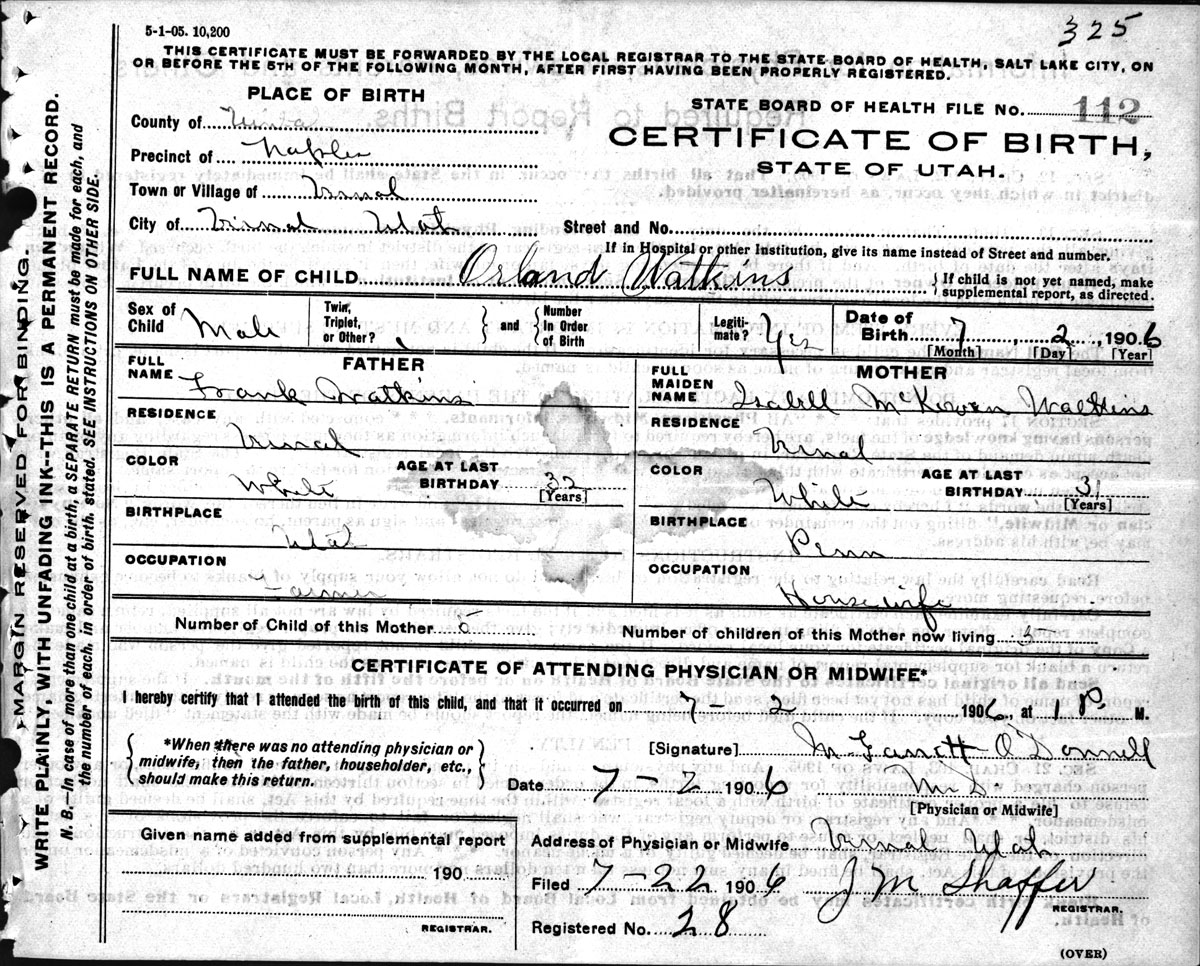 5-1-05. 10,200
325
THIS CERTIFICATE MUST BE FORWARDED BY THE LOCAL REGISTRAR TO THE STATE BOARD OF HEALTH, SALT LAKE CITY, ON
OR BEFORE THE 5TH OF THE FOLLOWING MONTH, AFTER FIRST HAVING BEEN PROPERLY REGISTERED.
PLACE OF BIRTH
STATE BOARD OF HEALTH FILE No. 112
County of
CERTIFICATE OF BIRTH,
Precinct of Naples
STATE OF UTAH.
Town or Village of Virnal
City of Virnal Utah Street and No.
If in Hospital or other Institution, give its name instead of Street and number.
FULL NAME OF CHILD Orland Watkins { If child is not yet named, make
supplemental report, as directed.
Sex of
Child Male
Twin,
Triplet,
or Other? } and { Number
In Order
of Birth
Legiti-
mate? Yes
Date of
Birth 7 2 , 1906
[Month] [Day] [Year]
FATHER
FULL
NAME Frank Watkins
RESIDENCE
Virnal
COLOR
White
AGE AT LAST
BIRTHDAY 32
[Years]
BIRTHPLACE
Utah
OCCUPATION
Farmer
MOTHER
FULL
MAIDEN
NAME Isabell McKowen Watkins
RESIDENCE
Virnal
COLOR
White
AGE AT LAST
BIRTHDAY 31
[Years]
BIRTHPLACE
Penn
OCCUPATION
Housewife
Number of Child of this Mother
Number of children of this Mother now living 3
CERTIFICATE OF ATTENDING PHYSICIAN OR MIDWIFE*
I hereby certify that I attended the birth of this child, and that it occurred on 7 - 2 1906, at 1 P M.
{ *When there was no attending physician or
midwife, then the father, householder, etc.,
should make this return. }
[Signature] O'Donnell
Date 7-2 1906 M D
[Physician or Midwife]
Given name added from supplemental report
190
REGISTRAR.
Address of Physician or Midwife Virnal Utah
Filed 7-22 1906 J M Shaffer
REGISTRAR.
Registered No. 28
(OVER)
MARGIN RESERVED FOR BINDING.
WRITE PLAINLY, WITH UNFADING INK--THIS IS A PERMANENT RECORD.
N. B.—In case of more than one child at a birth, a SEPARATE RETURN must be made for each, and
the number of each, in order of birth, stated. SEE INSTRUCTIONS ON OTHER SIDE.